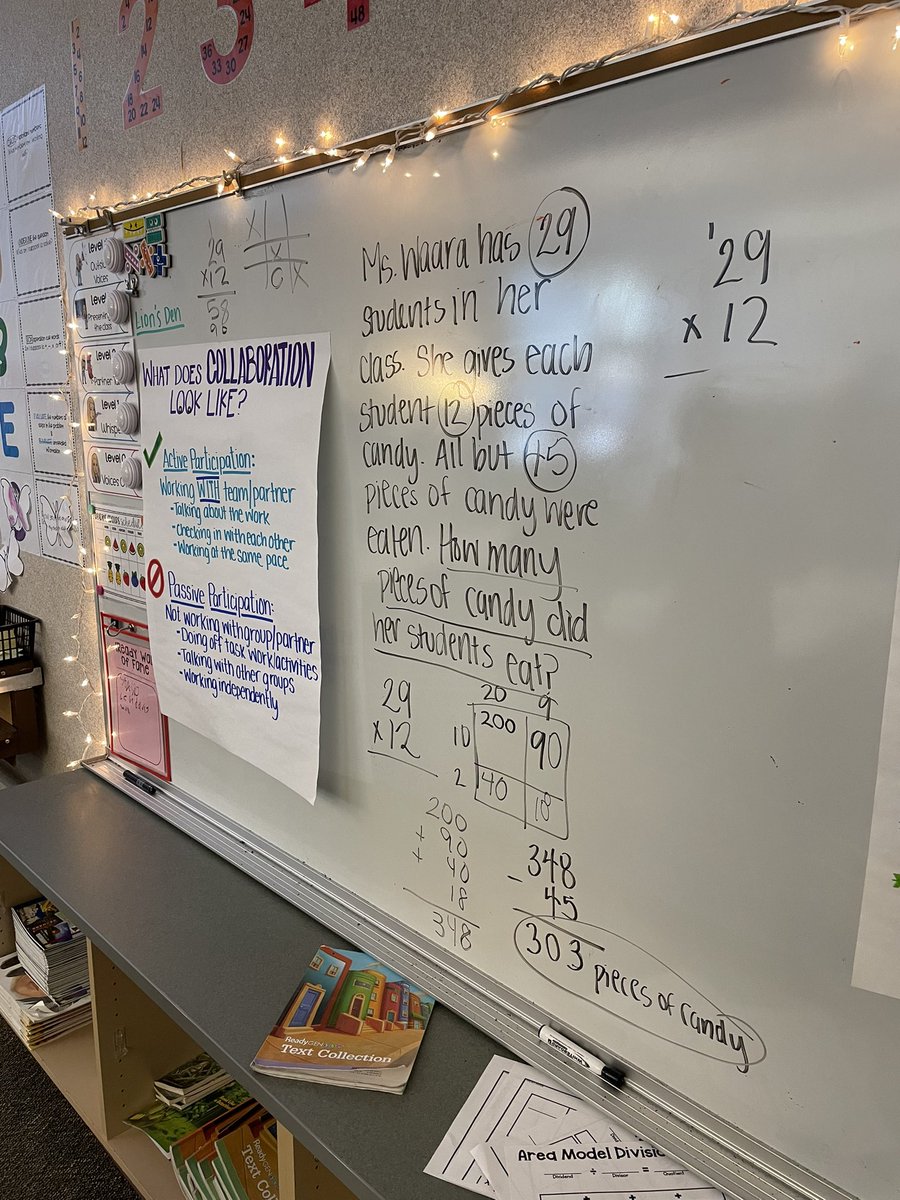 48
36
24
27
33
30
18
20 22 24
Level
Outside
Voices
Level
Presenting
the class
Level
Partner
Level
Whisper
Level 0
Voices 0
E
29
x12
58
Lion's Den
WHAT DOES COLLABORATION
LOOK LIKE?
Active Participation:
Working WITH team/partner
-Talking about the work
-Checking in with each other
-Working at the same pace
Passive Participation:
Not working with group/partner
-Doing off task work/activities
-Talking with other groups
-Working independently
Ms. Waara has 29
students in her
class. She gives each
student 12 pieces of
candy. All but 45
pieces of candy were
eaten. How many
pieces of candy did
her students eat?
29
x12
20 9
10 200 90
2 40 18
200
+ 90
+ 40
18
348
348
- 45
303 pieces of candy
1
29
x 12
ReadyGEN
Text Collection
Text Coll
Area Model Divisio
Dividend ÷ Divisor = Quotient